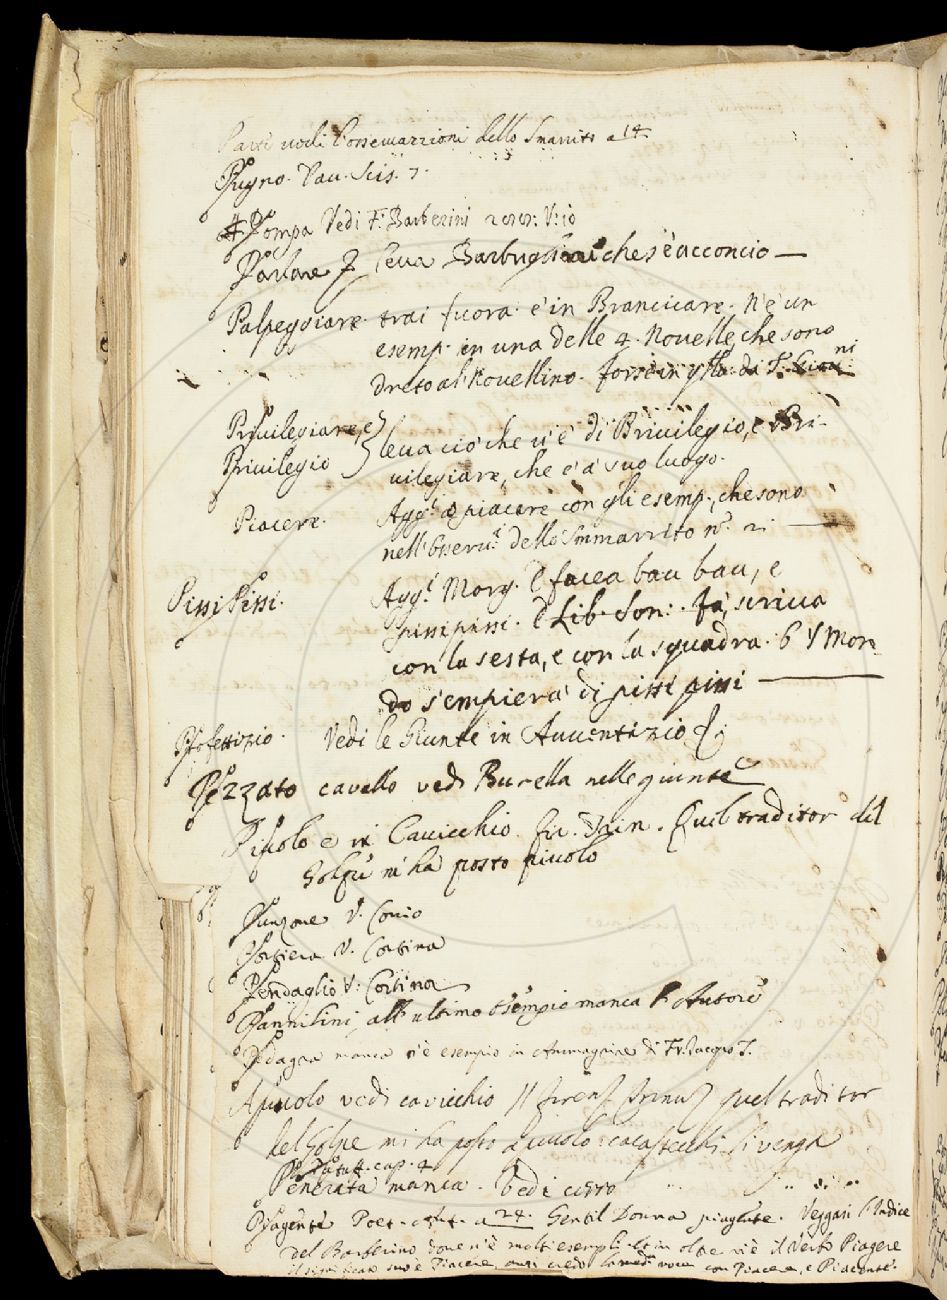 Parti vedi l'osservazzioni dello Smarrito a 14.
Pugno. Vau. Scis. 7.
# Pompa Vedi F. Barberini
Parlare leva che s'è acconcio —
Palpeggiare. trai fuora. è in Brancicare. N'è un
esemp. in una delle 4. Novelle, che sono
dreto al Novellino. forse in da
Privilegiare, e
Privilegio
leva ciò che v'è di Brivilegio, e Bri-
vilegiare, che è a suo luogo.
Piacere. Agg. a piacere con gli esemp., che sono
nell'Osserv. dello Smmarrito n. 2. —
Pissi Pissi. Agg. Morg. E facea bau bau, e
pissi pissi. E Lib. Son. Fa, scrivea
con la sesta, e con la squadra. 6 Mon
do s'empiera di pissi pissi —
Profettizio. Vedi le Giunte in Avventizio
Pezzato cavallo vedi Burella nelle giunte
Pivolo e in Cavicchio. fir. Trin. Quel traditor del
Golpe m'ha posto pivolo
Punzone V. Conio
Portiera V. Cortina
Pendaglio V. Cortina
Pannilini, all'ultimo Esempio manca l'Autore
manca v'è esempio in di Fr. Jacopo T.
Apivolo vedi cavicchio // firenz. Trinuz. quel traditor
del Golpe mi ha posto a pivolo: si venga
cap. 4
Penerata manca. Vedi cerro
Piagente Poet. ant. a 24. Gentil Donna piagente. Veggasi l'Indice
del Barberino dove n'è molti esempli et in oltre v'è il Verbo Piagere
il significato suo è Piacere, anzi credo la medª voce con Piacere, e Piacente.